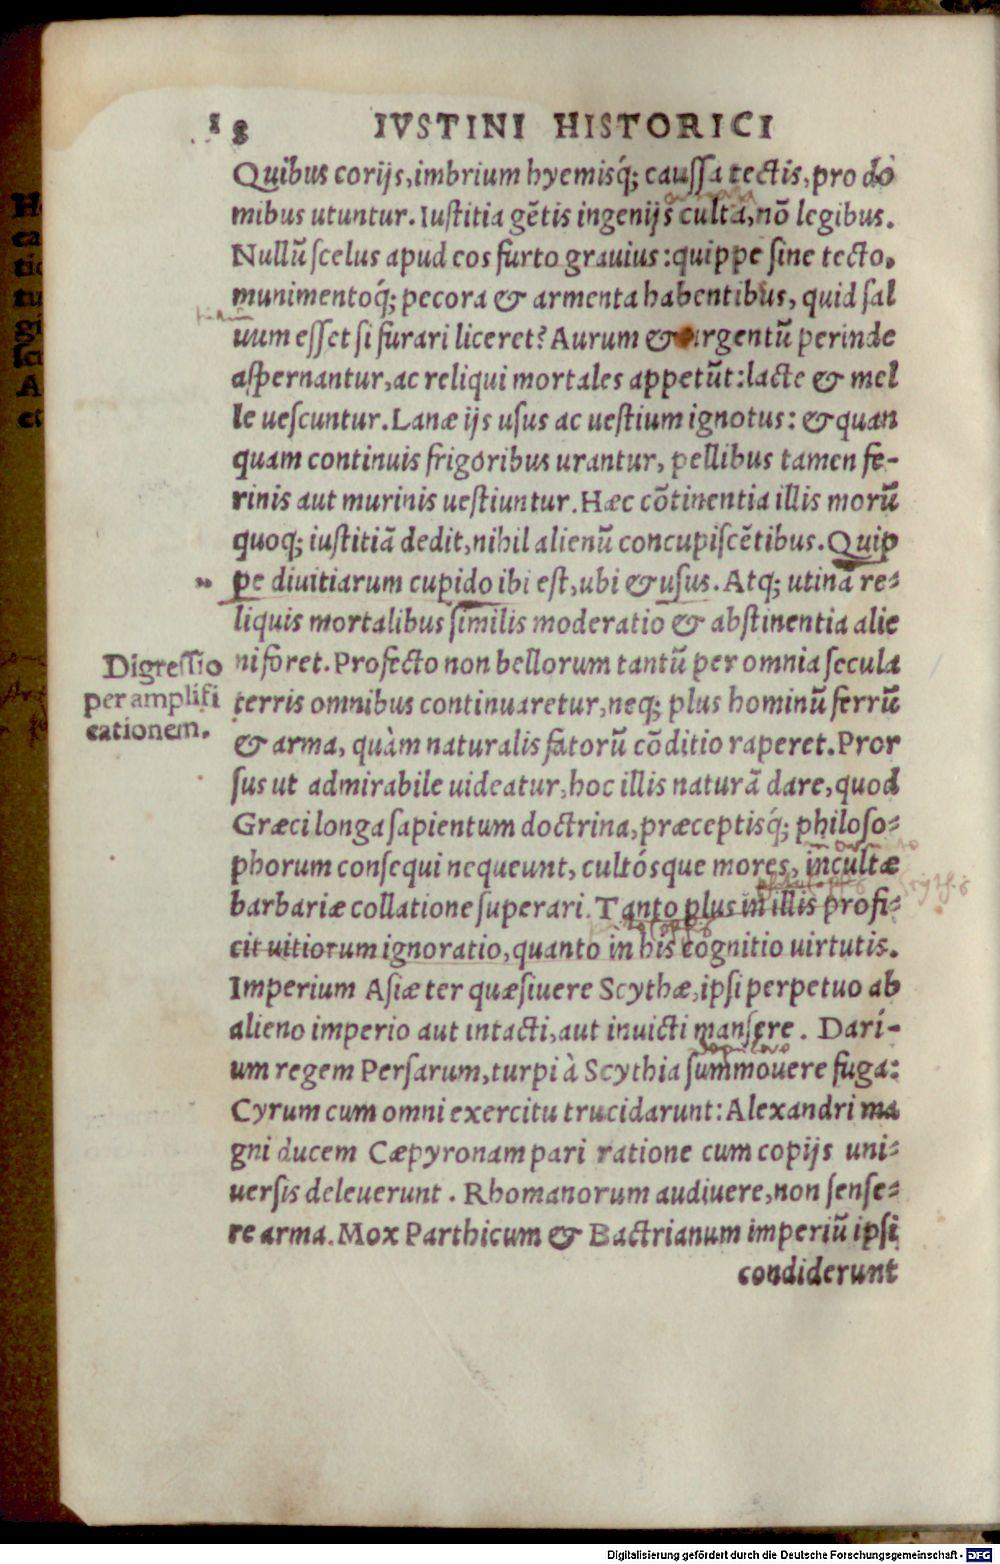 18 IVSTINI HISTORICI
Quibus corijs, imbrium hyemisq́; caussa tectis, pro do
mibus utuntur. Iustitia gẽtis ingenijs culta, nõ legibus.
Nullũ scelus apud eos furto grauius: quippe sine tecto,
munimentoq́; pecora & armenta habentibus, quid sal
uum esset si furari liceret? Aurum & argentũ perinde
aspernantur, ac reliqui mortales appetũt: lacte & mel
le uescuntur. Lanæ ijs usus ac uestium ignotus: & quan
quam continuis frigoribus urantur, pellibus tamen fe-
rinis aut murinis uestiuntur. Hæc cõtinentia illis morũ
quoq; iustitiã dedit, nihil alienũ concupiscẽtibus. Quip
pe diuitiarum cupido ibi est, ubi & usus. Atq; utinã re-
liquis mortalibus similis moderatio & abstinentia alie
Digressio
per amplifi
cationem.
ni foret. Profecto non bellorum tantũ per omnia secula
terris omnibus continuaretur, neq; plus hominũ ferrũ
& arma, quàm naturalis fatorũ cõditio raperet. Pror
sus ut admirabile uideatur, hoc illis naturã dare, quod
Græci longa sapientum doctrina, præceptisq́; philoso-
phorum consequi nequeunt, cultósque mores, incultæ
Scythis
barbariæ collatione superari. Tanto plus in illis profi-
cit uitiorum ignoratio, quanto in his cognitio uirtutis.
Imperium Asiæ ter quæsiuere Scythæ, ipsi perpetuo ab
alieno imperio aut intacti, aut inuicti mansere. Darí-
um regem Persarum, turpi à Scythia summouere fuga:
Cyrum cum omni exercitu trucidarunt: Alexandri ma
gni ducem Cæpyronam pari ratione cum copijs uni-
uersis deleuerunt. Rhomanorum audiuere, non sense-
re arma. Mox Parthicum & Bactrianum imperiũ ipsi
condiderunt
Digitalisierung gefördert durch die Deutsche Forschungsgemeinschaft - DFG